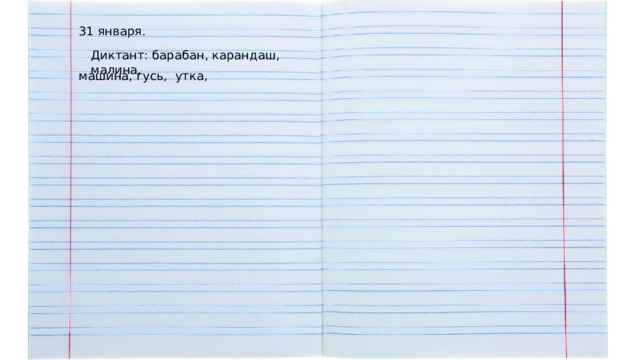 31 января.
Диктант: барабан, карандаш,
малина,
машина, гусь, утка,